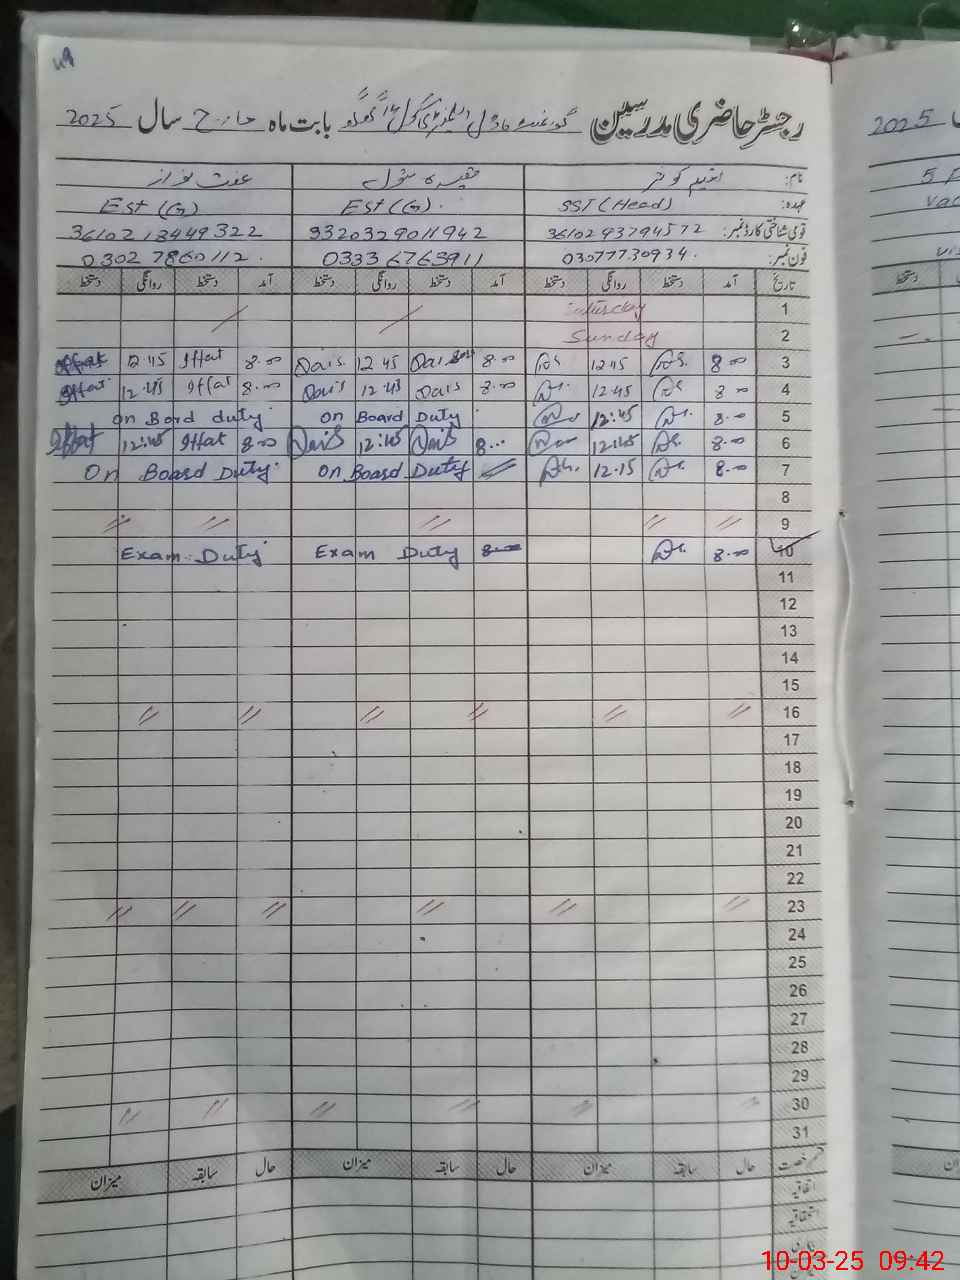 49
رجسٹر حاضری مدرسین گورنمنٹ ماڈل ایلیمنٹری سکول بابت ماہ مارچ سال 2025
2025
نام: کوثر بتول عفت نواز
عہدہ: SST (Head) Est (G). Est (G)
قومی شناختی کارڈ نمبر: 3610293794572 9320329011942 3610218449322
فون نمبر: 03077730934. 03336765911 03027860112.
تاریخ آمد دستخط روانگی دستخط آمد دستخط روانگی دستخط آمد دستخط روانگی دستخط
دستخط
1 Saturday
2 Sunday
3 8.00 12.45 8.00 Qais 12.45 Qais. 8.00 Iffat 12.45 Iffat
4 8.00 12.45 8.00 Qais 12.45 Qais 8.00 Iffat 12.45 Iffat
5 8.00 12.45 On Board Duty On Bord duty
6 8.00 12.45 8.00 Qais 12.45 Qais 8.00 Iffat 12.45 Iffat
7 8.00 12.15 On Board Duty On Board Duty
8
9
10 8.00 8.00 Exam Duty Exam Duty
11
12
13
14
15
16
17
18
19
20
21
22
23
24
25
26
27
28
29
30
31
قسم رخصت حال سابقہ میزان حال سابقہ میزان حال سابقہ میزان
اتفاقیہ
استحقاقیہ
بیماری
10-03-25 09:42